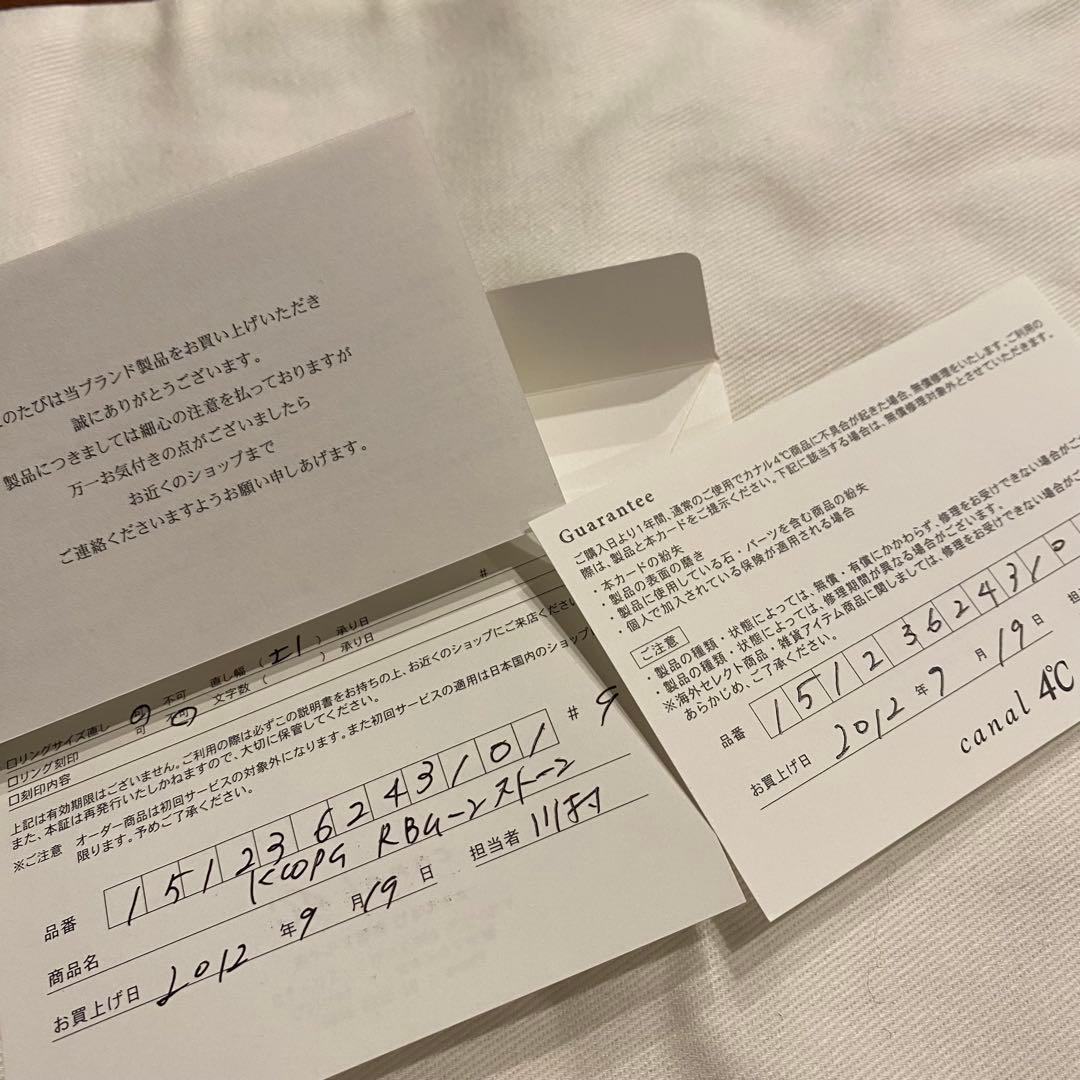 のたびは当ブランド製品をお買い上げいただき
誠にありがとうございます。
製品につきましては細心の注意を払っておりますが
万一お気付きの点がございましたら
お近くのショップまで
ご連絡くださいますようお願い申しあげます。
#
□リングサイズ直し 可 不可 直し幅 ( ±1 ) 承り日
□リング刻印 可 文字数 ( ) 承り日
□刻印内容
上記は有効期限はございません。ご利用の際は必ずこの説明書をお持ちの上、お近くのショップにご来店ください
また、本証は再発行いたしかねますので、大切に保管してください。
※ご注意 オーダー商品は初回サービスの対象外になります。また初回サービスの適用は日本国内のショップに
限ります。予めご了承ください。
品番 151236243101 # 9
商品名 K10PG RBGーンストーン
お買上げ日 2012 年 9 月 19 日 担当者 川村
Guarantee
ご購入日より1年間、通常のご使用でカナル4℃商品に不具合が起きた場合、無償修理をいたします。ご利用の
際は、製品と本カードをご提示ください。下記に該当する場合は、無償修理対象外とさせていただきます。
・本カードの紛失
・製品の表面の磨き
・製品に使用している石・パーツを含む商品の紛失
・個人で加入されている保険が適用される場合
ご注意
・製品の種類・状態によっては、無償・有償にかかわらず、修理をお受けできない場合がご
・製品の種類・状態によっては、修理期間が異なる場合がございます。
※海外セレクト商品・雑貨アイテム商品に関しましては、修理をお受けできない場合がご
あらかじめ、ご了承ください。
品番 15123624310
お買上げ日 2012 年 9 月 19 日 担
canal 4℃